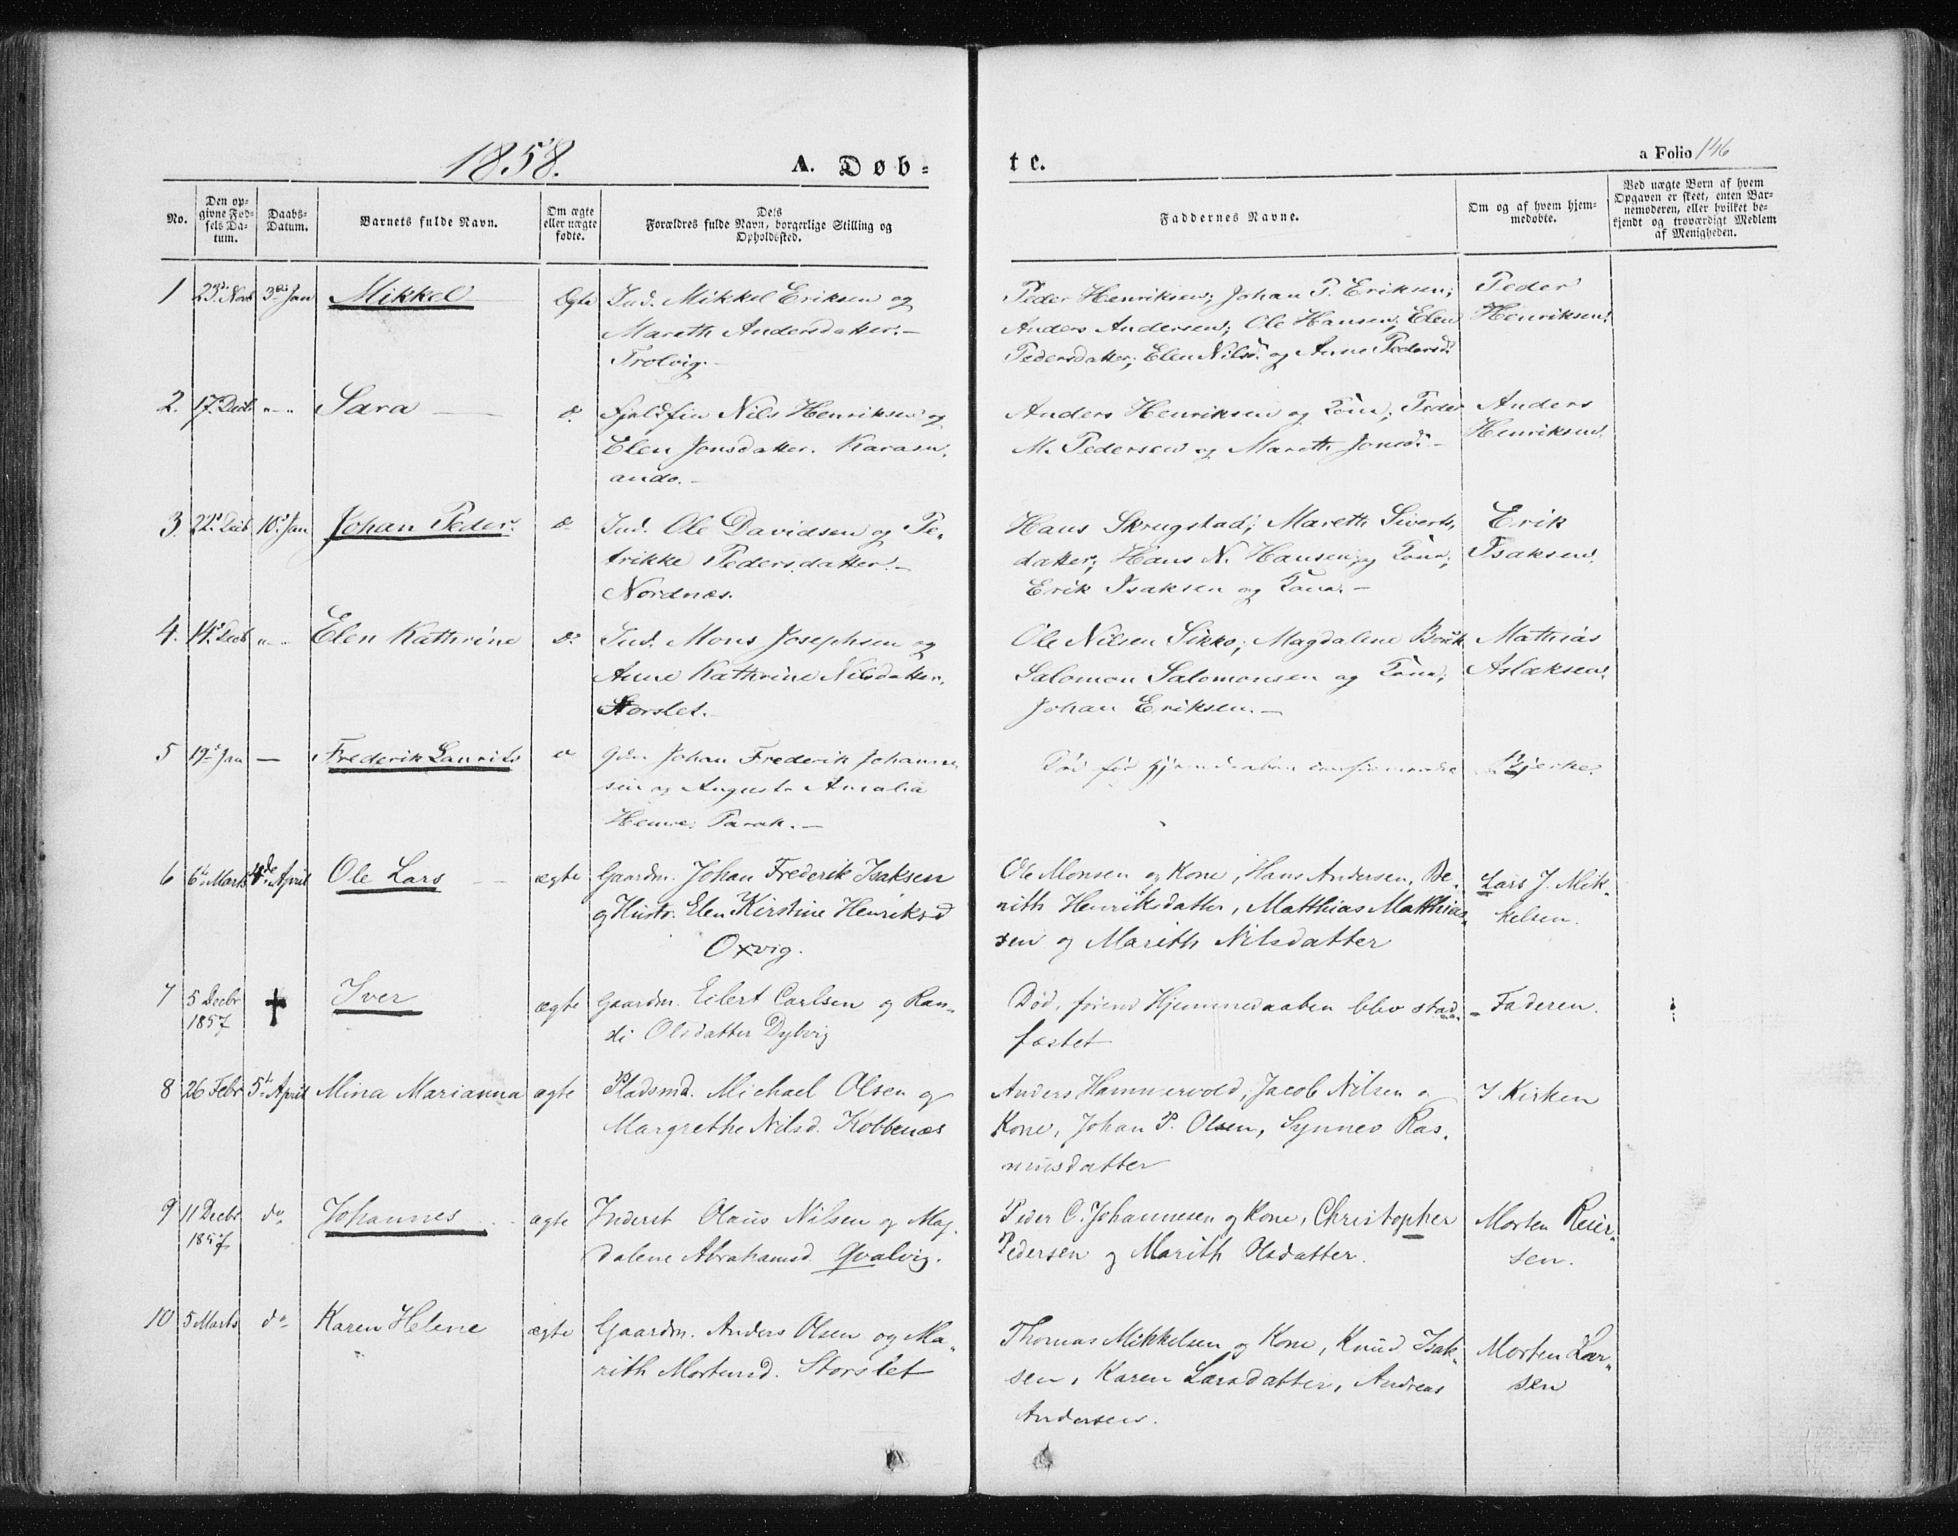 1858.
A. Døb-
te.
a Folio 146
No.
Den op-
givne Fød-
sels Da-
tum.
Daabs-
Datum.
Barnets fulde Navn.
Om ægte
eller uægte
fødte.
Dets
Forældres fulde Navn, borgerlige Stilling og
Opholdssted.
Faddernes Navne.
Om og af hvem hjem-
medøbte.
Ved uægte Børn af hvem
Opgaven er skeet, enten Bar-
nemoderen, eller hvilket be-
kjendt og troværdigt Medlem
af Menigheden.
1 23de Novb 3die Jan Mikkel Ægte Ind. Mikkel Eriksen og
Mareth Andersdatter.-
Trolvig.-
Peder Henriksen; Johan P. Eriksen;
Anders Andersen; Ole Hansen; Elen
Pedersdatter; Elen Nilsd. og Anne Pedersd.
Peder
Henriksen.
2. 17de Decb "-" Sara d. Fjeldfin Nils Henriksen og
Elen Jonsdatter. Karasu,
ando.-
Anders Henriksen og Kone; Peder
M. Pedersen og Mareth Jonsd.-
Anders
Henriksen.
3. 22d Decb 10d Jan Johan Peder. d. Ind. Ole Davidsen og Pe-
trikke Pedersdatter.-
Nordnæs.
Hans Skrugstad; Mareth Siverts-
datter; Hans N. Hansen og Kone;
Erik Isaksen og Kone.-
Erik
Isaksen.
4. 14d Decb "-" Elen Kathrine D. Ind. Mons Josephsen og
Anne Kathrine Nilsdatter.
Storslet.-
Ole Nilsen Sikko; Magdalene
Salomon Salomonsen og Kone;
Johan Eriksen.-
Mathias
Aslaksen.
5 19d Jan — Frederik Laurits Johan Frederik Johanne-
sen og Augusta Amalia
Død før Hjemmedaaben
Bjerke.
6 6te Marts 4de April Ole Lars ægte Gaardm. Johan Frederik Isaksen
og Hustr. Elen Kirstine Henriksd
Oxvig.
Ole Monsen og Kone, Hans Andersen, Be-
rith Henriksdatter, Matthias Matthias-
sen og Marith Nilsdatter
Lars J. Mik-
kelsen.
7 5 Decbr
1857 † Iver ægte Gaardm. Eilert Carlsen og Ran-
di Olsdatter Dybvig
Død, førend Hjemmedaaben blev stad-
fæstet
Faderen.
8 26 Febr 5te April Mina Marianna ægte Pladsmd. Michael Olsen og
Margrethe Nilsd. Kobbenæs
Anders Hammervold, Jacob Nilsen o
Kone, Johan P. Olsen, Synnev Ras-
musdatter
I Kirken
9 11 Decbr
1857 do Johannes ægte Inderst Olaus Nilsen og Mag-
dalene Abrahamsd. Qvalvig.
Peder C. Johannesen og Kone, Christopher
Pedersen og Marith Olsdatter.
Morten Reier-
sen.
10 5 Marts do Karen Helene ægte Gaardm. Anders Olsen og Ma-
rith Mortensd. Storslet
Thomas Mikkelsen og Kone, Knud Isak-
sen, Karen Larsdatter, Andreas
Andersen.
Morten Lar-
sen